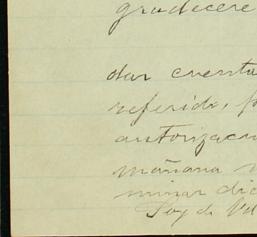 gradecere
dar cuenta
referido, 
autorizac
mañana
minar dic
Soy de Vd